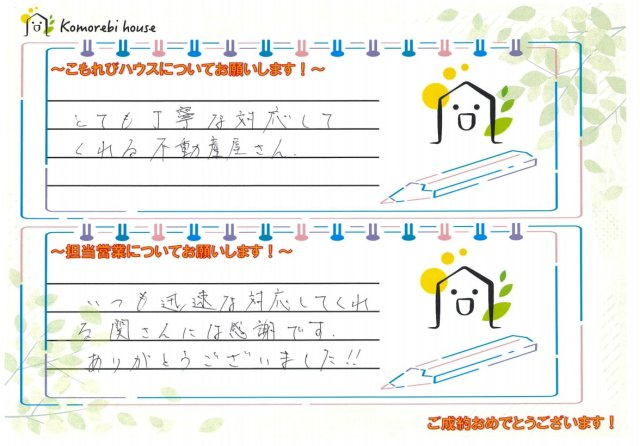 Komorebi house
～こもれびハウスについてお願いします！～
とても丁寧な対応して
くれる不動産屋さん.
～担当営業についてお願いします！～
いつも迅速な対応してくれ
る関さんには感謝です.
ありがとうございました!!
ご成約おめでとうございます！